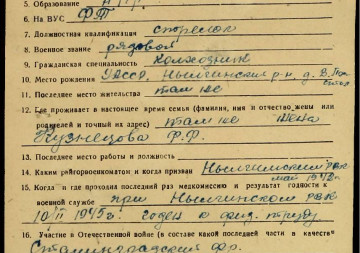 5. Образование
6. На ВУС ФТ
7. Должностная квалификация стрелок
8. Военное звание рядовой
9. Гражданская специальность колхозник
10. Место рождения УАССР, Нылгинский р-н, д. В.
11. Последнее место жительства там же
12. Где проживает в настоящее время семья (фамилия, имя и отчество жены или
родителей и точный их адрес) там же жена
Кузнецова Ф.Ф.
13. Последнее место работы и должность
14. Каким райгорвоенкоматом и когда призван Нылгинский РВК
май 1942
15. Когда и где проходил последний раз медкомиссию и результат годности к
военной службе при Нылгинском РВК
10/II 1945 г. годен к физ. труду
16. Участие в Отечественной войне (в составе какой последней части и в качестве
Сталинградский фр.